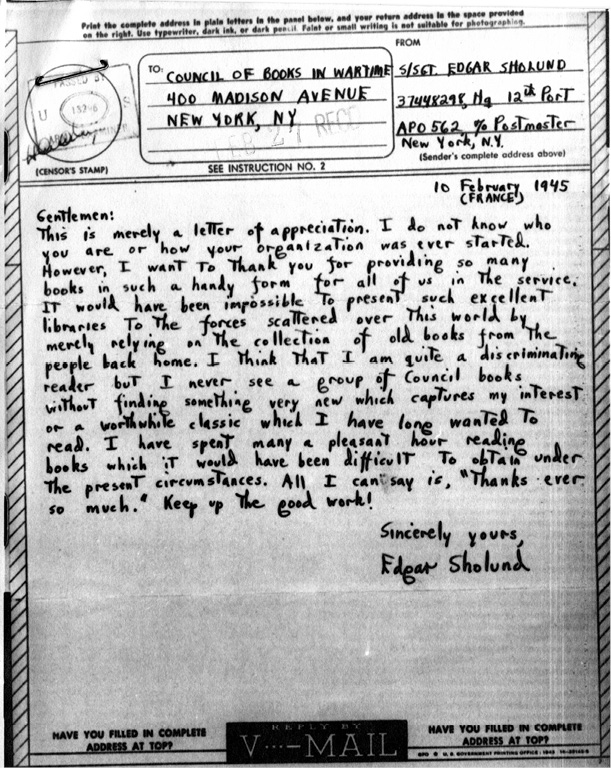 Print the complete address in plain letters in the panel below, and your return address in the space provided
on the right. Use typewriter, dark ink, or dark pencil. Faint or small writing is not suitable for photographing.
FROM
TO: COUNCIL OF BOOKS IN WARTIME
400 MADISON AVENUE
NEW YORK, NY
FEB 27 REC'D
S/SGT. EDGAR SHOLUND
37448298, Hq 12th Port
APO 562, % Postmaster
New York, N.Y.
(Sender's complete address above)
PASSED BY
U S
(CENSOR'S STAMP)
SEE INSTRUCTION NO. 2
10 February 1945
(FRANCE)
Gentlemen:
This is merely a letter of appreciation. I do not know who
you are or how your organization was ever started.
However, I want to thank you for providing so many
books in such a handy form for all of us in the service.
It would have been impossible to present such excellent
libraries to the forces scattered over this world by
merely relying on the collection of old books from the
people back home. I think that I am quite a discriminating
reader but I never see a group of Council books
without finding something very new which captures my interest
or a worthwhile classic which I have long wanted to
read. I have spent many a pleasant hour reading
books which it would have been difficult to obtain under
the present circumstances. All I can say is, "Thanks ever
so much." Keep up the good work!
Sincerely yours,
Edgar Sholund
HAVE YOU FILLED IN COMPLETE
ADDRESS AT TOP?
REPLY BY
V···—MAIL
HAVE YOU FILLED IN COMPLETE
ADDRESS AT TOP?